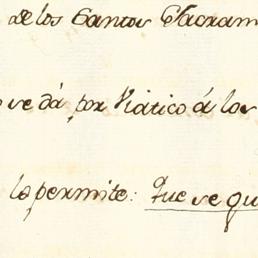 de los Santos Sacram
se dá por Viático á los
la permite: Que se qu